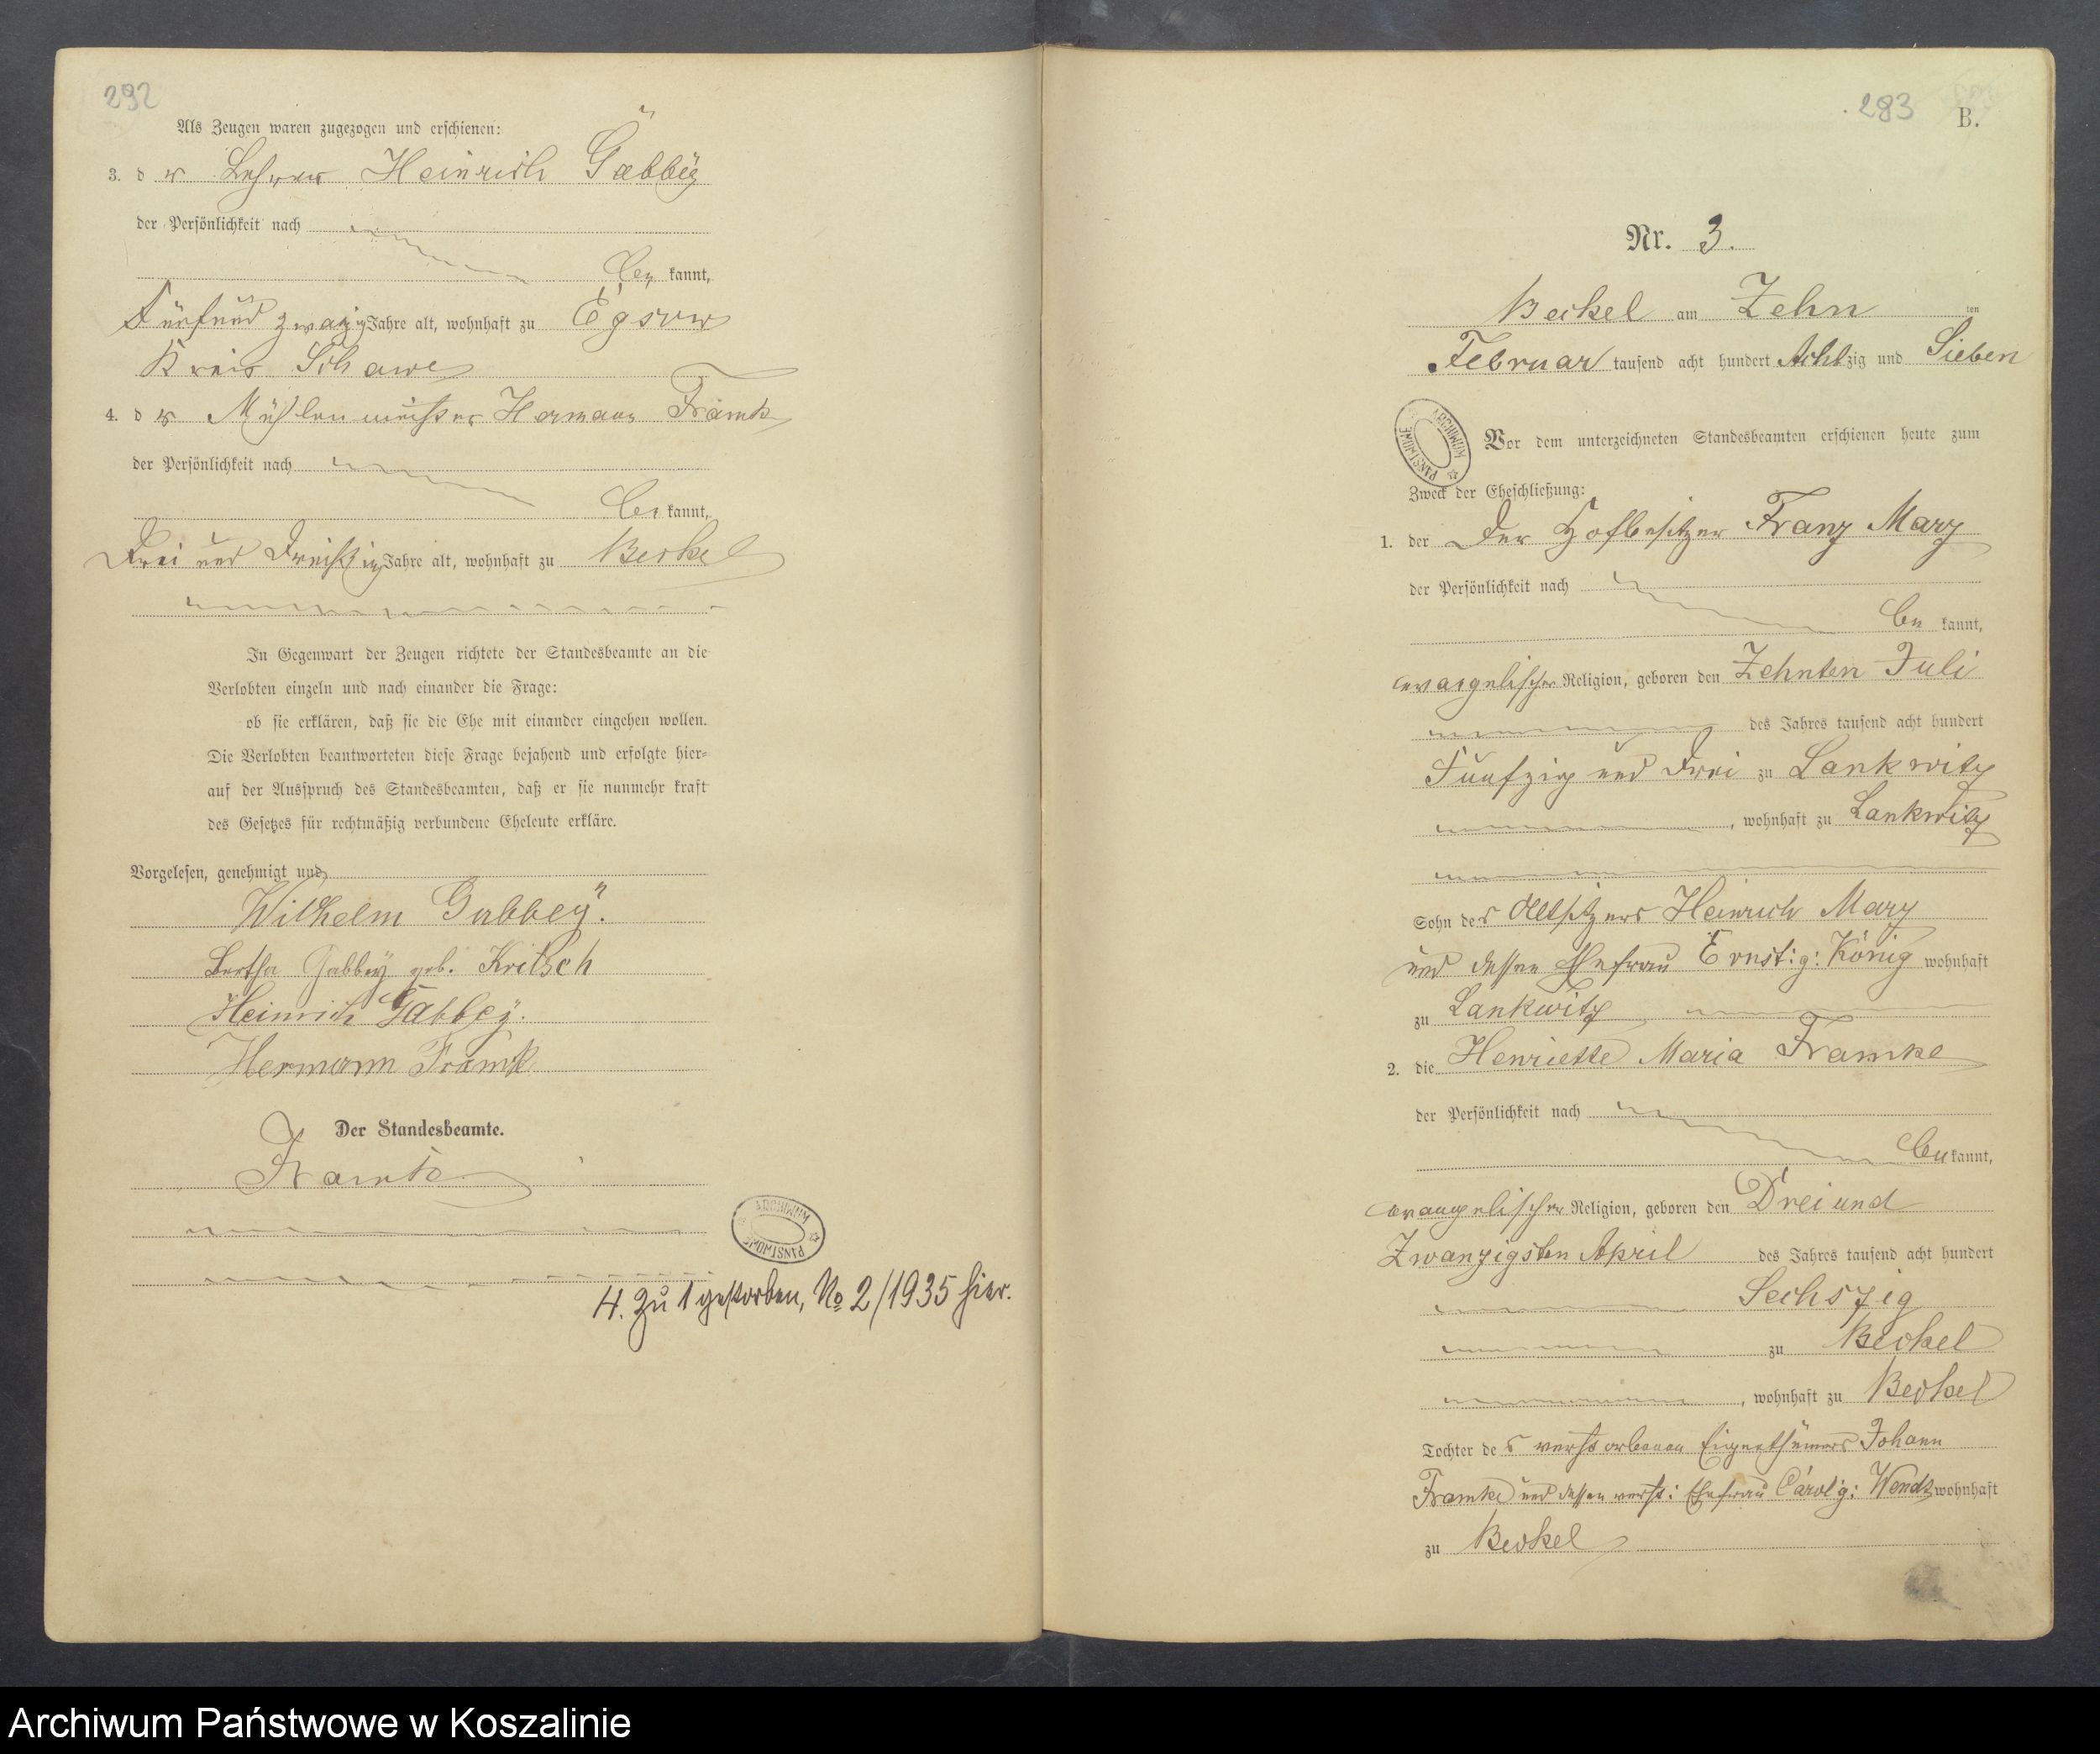 292
Als Zeugen waren zugezogen und erschienen:
3. der Lehrer Heinrich Gabbeÿ
der Persönlichkeit nach
be kannt,
Fünfund zwanzig Jahre alt, wohnhaft zu Egsow
Kreis Schlawe
4. der Mühlenmeister Hermann Framk
der Persönlichkeit nach
be kannt,
Drei und Dreißig Jahre alt, wohnhaft zu Beckel
In Gegenwart der Zeugen richtete der Standesbeamte an die
Verlobten einzeln und nach einander die Frage:
ob sie erklären, daß sie die Ehe mit einander eingehen wollen.
Die Verlobten beantworteten diese Frage bejahend und erfolgte hier=
auf der Ausspruch des Standesbeamten, daß er sie nunmehr kraft
des Gesetzes für rechtmäßig verbundene Eheleute erkläre.
Vorgelesen, genehmigt und
Wilhelm Gabbeÿ.
Bertha Gabbeÿ geb. Kritsch
Heinrich Gabbeÿ.
Hermann Framk
Der Standesbeamte.
Framke
ARCHIWUM PAŃSTWOWE
H. Zu 1 gestorben, No 2/1935 hier.
283
B.
Nr. 3.
Beckel am Zehn ten
Februar tausend acht hundert Achtzig und Sieben
ARCHIWUM PAŃSTWOWE
Vor dem unterzeichneten Standesbeamten erschienen heute zum
Zweck der Eheschließung:
1. der Der Hofbesitzer Franz Marz
der Persönlichkeit nach
be kannt,
evangelischer Religion, geboren den Zehnten Juli
des Jahres tausend acht hundert
Fünfzig und Drei zu Lankwitz
, wohnhaft zu Lankwitz
Sohn des Altsitzers Heinrich Marz
und dessen Ehefrau Ernst: g: König wohnhaft
zu Lankwitz
2. die Henriette Maria Framke
der Persönlichkeit nach
be kannt,
evangelischer Religion, geboren den Drei und
Zwanzigsten April des Jahres tausend acht hundert
Sechszig
zu Beckel
, wohnhaft zu Beckel
Tochter des verstorbenen Eigenthümers Johann
Framke und dessen verst: Ehefrau Carol g: Wendt wohnhaft
zu Beckel
Archiwum Państwowe w Koszalinie